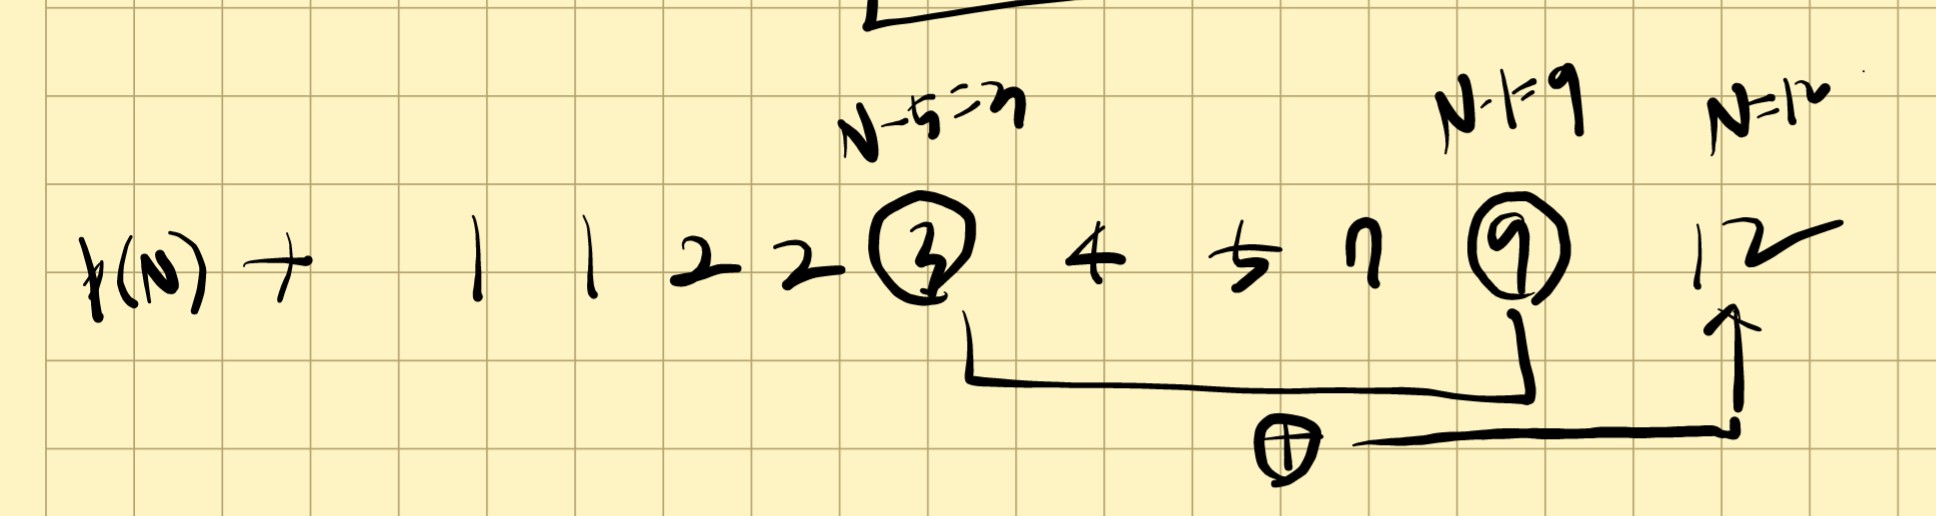 N-5=7 N-1=9 N=12
p(N) + 1 1 2 2 3 4 5 7 9 12
+